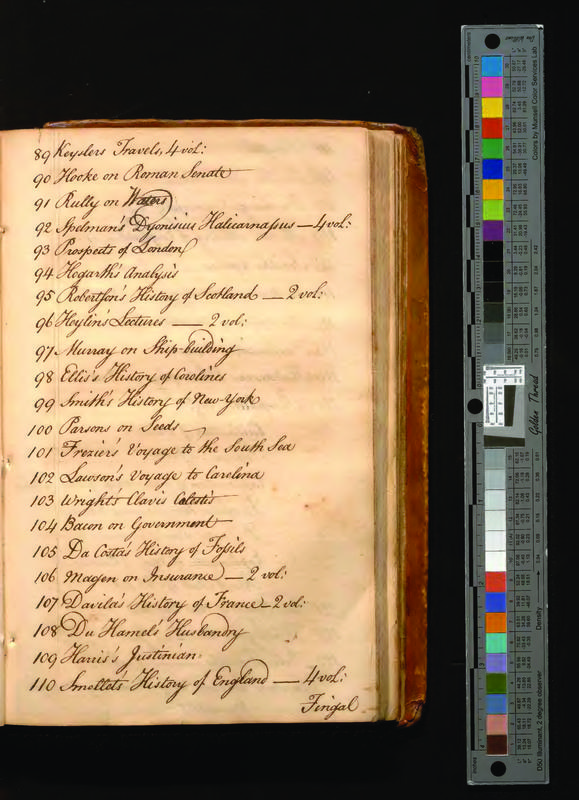 89 Keyslers Travels, 4 vol:
90 Hooke on Roman Senate
91 Rutty on Waters
92 Spelman's Dyonisius Halicarnassus — 4 vol:
93 Prospects of London
94 Hogarth's Analysis
95 Robertson's History of Scotland — 2 vol:
96 Heylin's Lectures — 2 vol:
97 Murray on Ship-building
98 Ellis's History of Corolines
99 Smith's History of New-York
100 Parsons on Seeds
101 Frezier's Voyage to the South Sea
102 Lawson's Voyage to Carolina
103 Wright's Clavis Celestis
104 Bacon on Government
105 Da Costa's History of Fossils
106 Magen on Insurance — 2 vol:
107 Davila's History of France — 2 vol:
108 Du Hamel's Husbandry
109 Harris's Justinian
110 Smollets History of England — 4 vol:
Fingal
Colors by Munsell Color Services Lab
Golden Thread
Density
D50 Illuminant, 2 degree observer